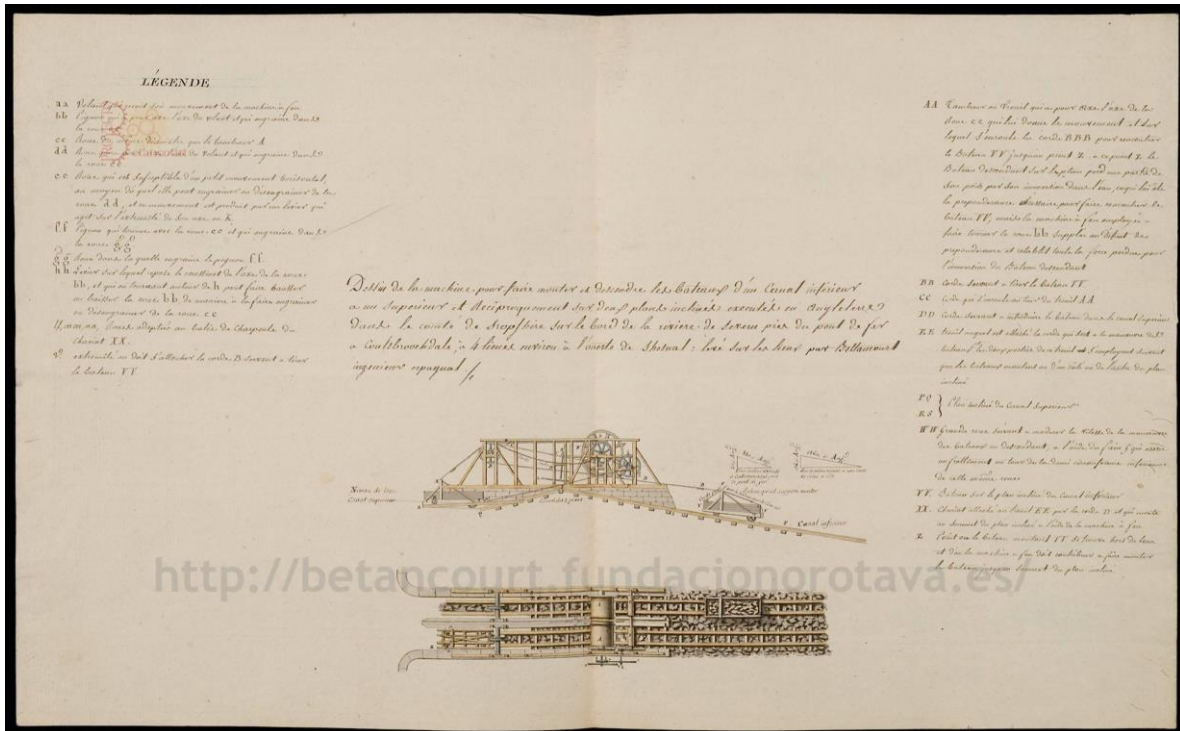 LÉGENDE
aa Volant qui reçoit son mouvement de la machine à feu
bb Pignon qui a pour axe l'axe du volant et qui engraine dans
la roue
cc Roue du même diamètre que le tambour A
dd Roue du volant et qui engraine dans
la roue
ee Roue qui est susceptible d'un petit mouvement horisontal,
au moyen du quel elle peut engrainer ou desengrainer de la
roue dd, et ce mouvement est produit par un levier qui
agit sur l'extremité de son axe en K.
ff Pignon qui tourne avec la roue ee et qui engraine dans
la roue gg
gg Roue dans la quelle engraine le pignon ff.
hh Levier sur lequel apuie le coussinet de l'axe de la roue
bb, et qui en tournant autour de h peut faire hausser
ou baisser la roue bb, de maniere à la faire engrainer
ou desengrainer de la roue cc
adaptées au batis de Charpente du
chariot XX.
extremité où doit s'attacher la corde B servant à tirer
le bateau VV.
Dessin de la machine pour faire monter et descendre les Bateaux d'un Canal inférieur
a un Supérieur et Réciproquement sur deux plans inclinés executés en Angleterre
dans le comté de Shropshire sur le bord de la riviere de Severn près du pont de fer
a Coalbroockdale, a 4 lieues environ à l'ouest de : levé sur les lieux par Bettancourt
ingenieur espagnol
AA Tambour ou Treuil qui a pour axe l'axe de la
Roue cc qui lui donne le mouvement et sur
lequel s'enroule la corde BBB pour remonter
le Bateau VV jusqu'au point Z. a ce point Z le
Bateau descendant sur le plan perd une partie de
son poids par son immersion dans l'eau, ce qui lui ôte
la preponderance necessaire pour faire remonter le
bateau VV, mais la machine à feu employée a
faire tourner la roue bb supplée au défaut de
preponderance et rétablit toute la force perdue par
l'immersion du Bateau descendant
BB Corde servant a tirer le bateau VV
CC Corde qui s'enroule au tour du treuil AA
DD Corde servant a introduire le bateau dans le canal Superieur
EE treuil auquel est attaché la corde qui sert a la manœuvre des
bateaux les deux parties de ce treuil s'employent suivant
que les bateaux montent ou d'un côté ou de l'autre du plan
incliné
PQ
RS } Plan incliné du Canal Superieur
WW Grande roue servant a moderer la vitesse de la manœuvre
des bateaux en descendant, a l'aide du frein f qui
un frottement au tour de la demi circonférence inférieure
de cette même roue
VV. Bateau sur le plan incliné du Canal inférieur
XX. Chariot attaché au treuil EE par la corde D et qui monte
au sommet du plan incliné a l'aide de la machine a feu
Z Point où le bateau montant VV se trouve hors de l'eau
et d'où la machine a feu doit contribuer a faire monter
le bateau jusqu'au sommet du plan incliné
Niveau de l'eau
Canal superieur
Canal inférieur
http://betancourt.fundacionorotava.es/